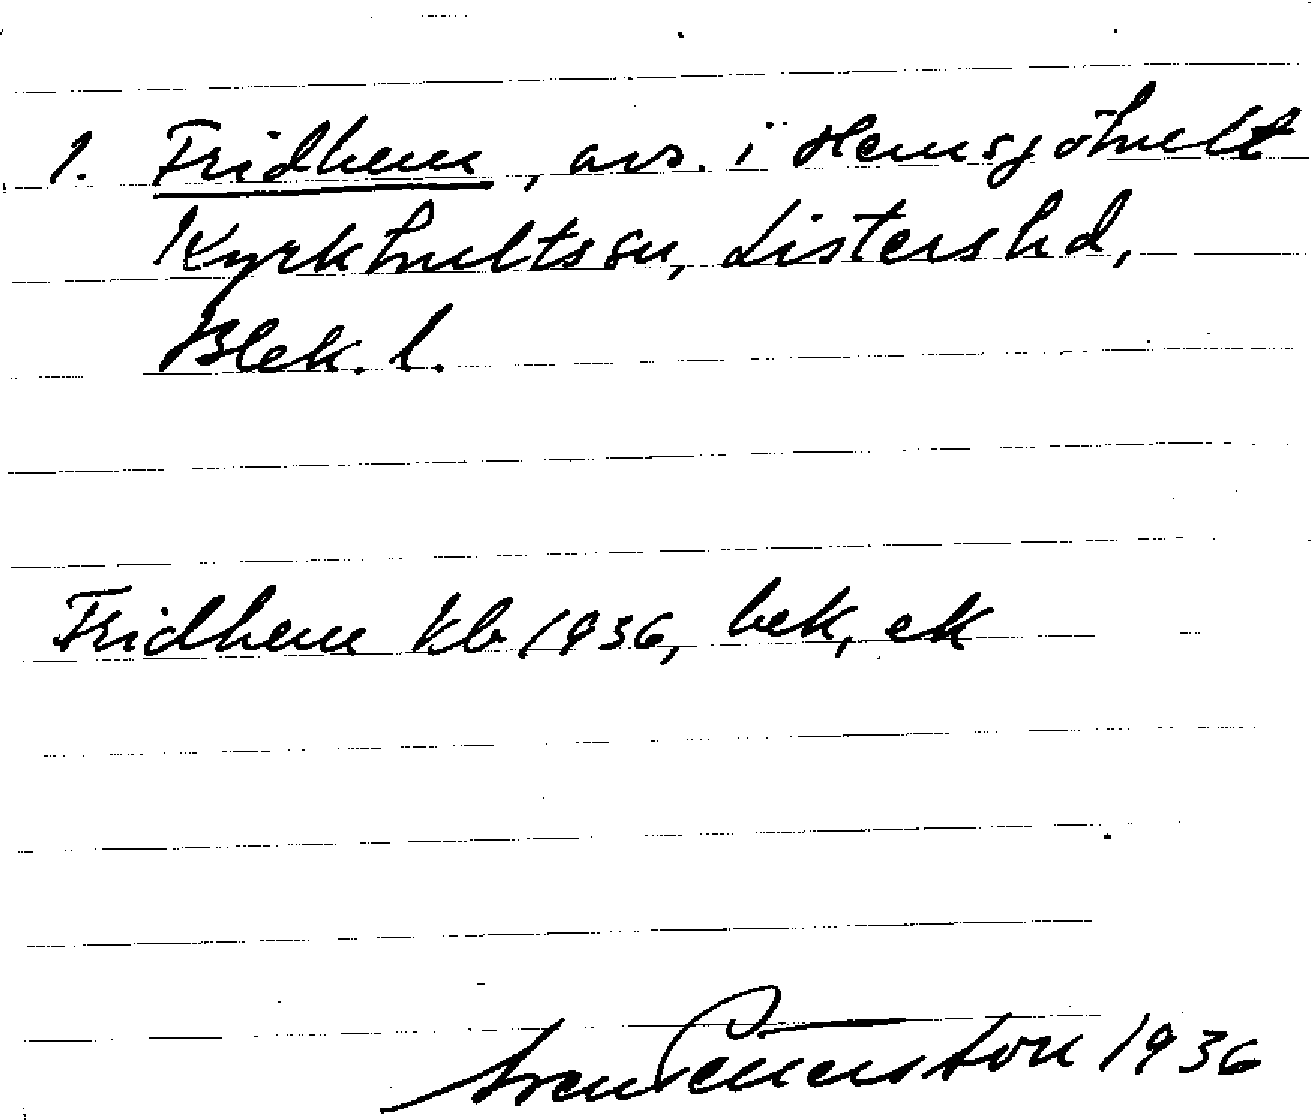 1. Fridhem, avs. i Hemsjöhult
Kyrkhults sn, Listers hd,
Blek. l.
Fridhem kb 1936, bek, ek
Sven Benson 1936